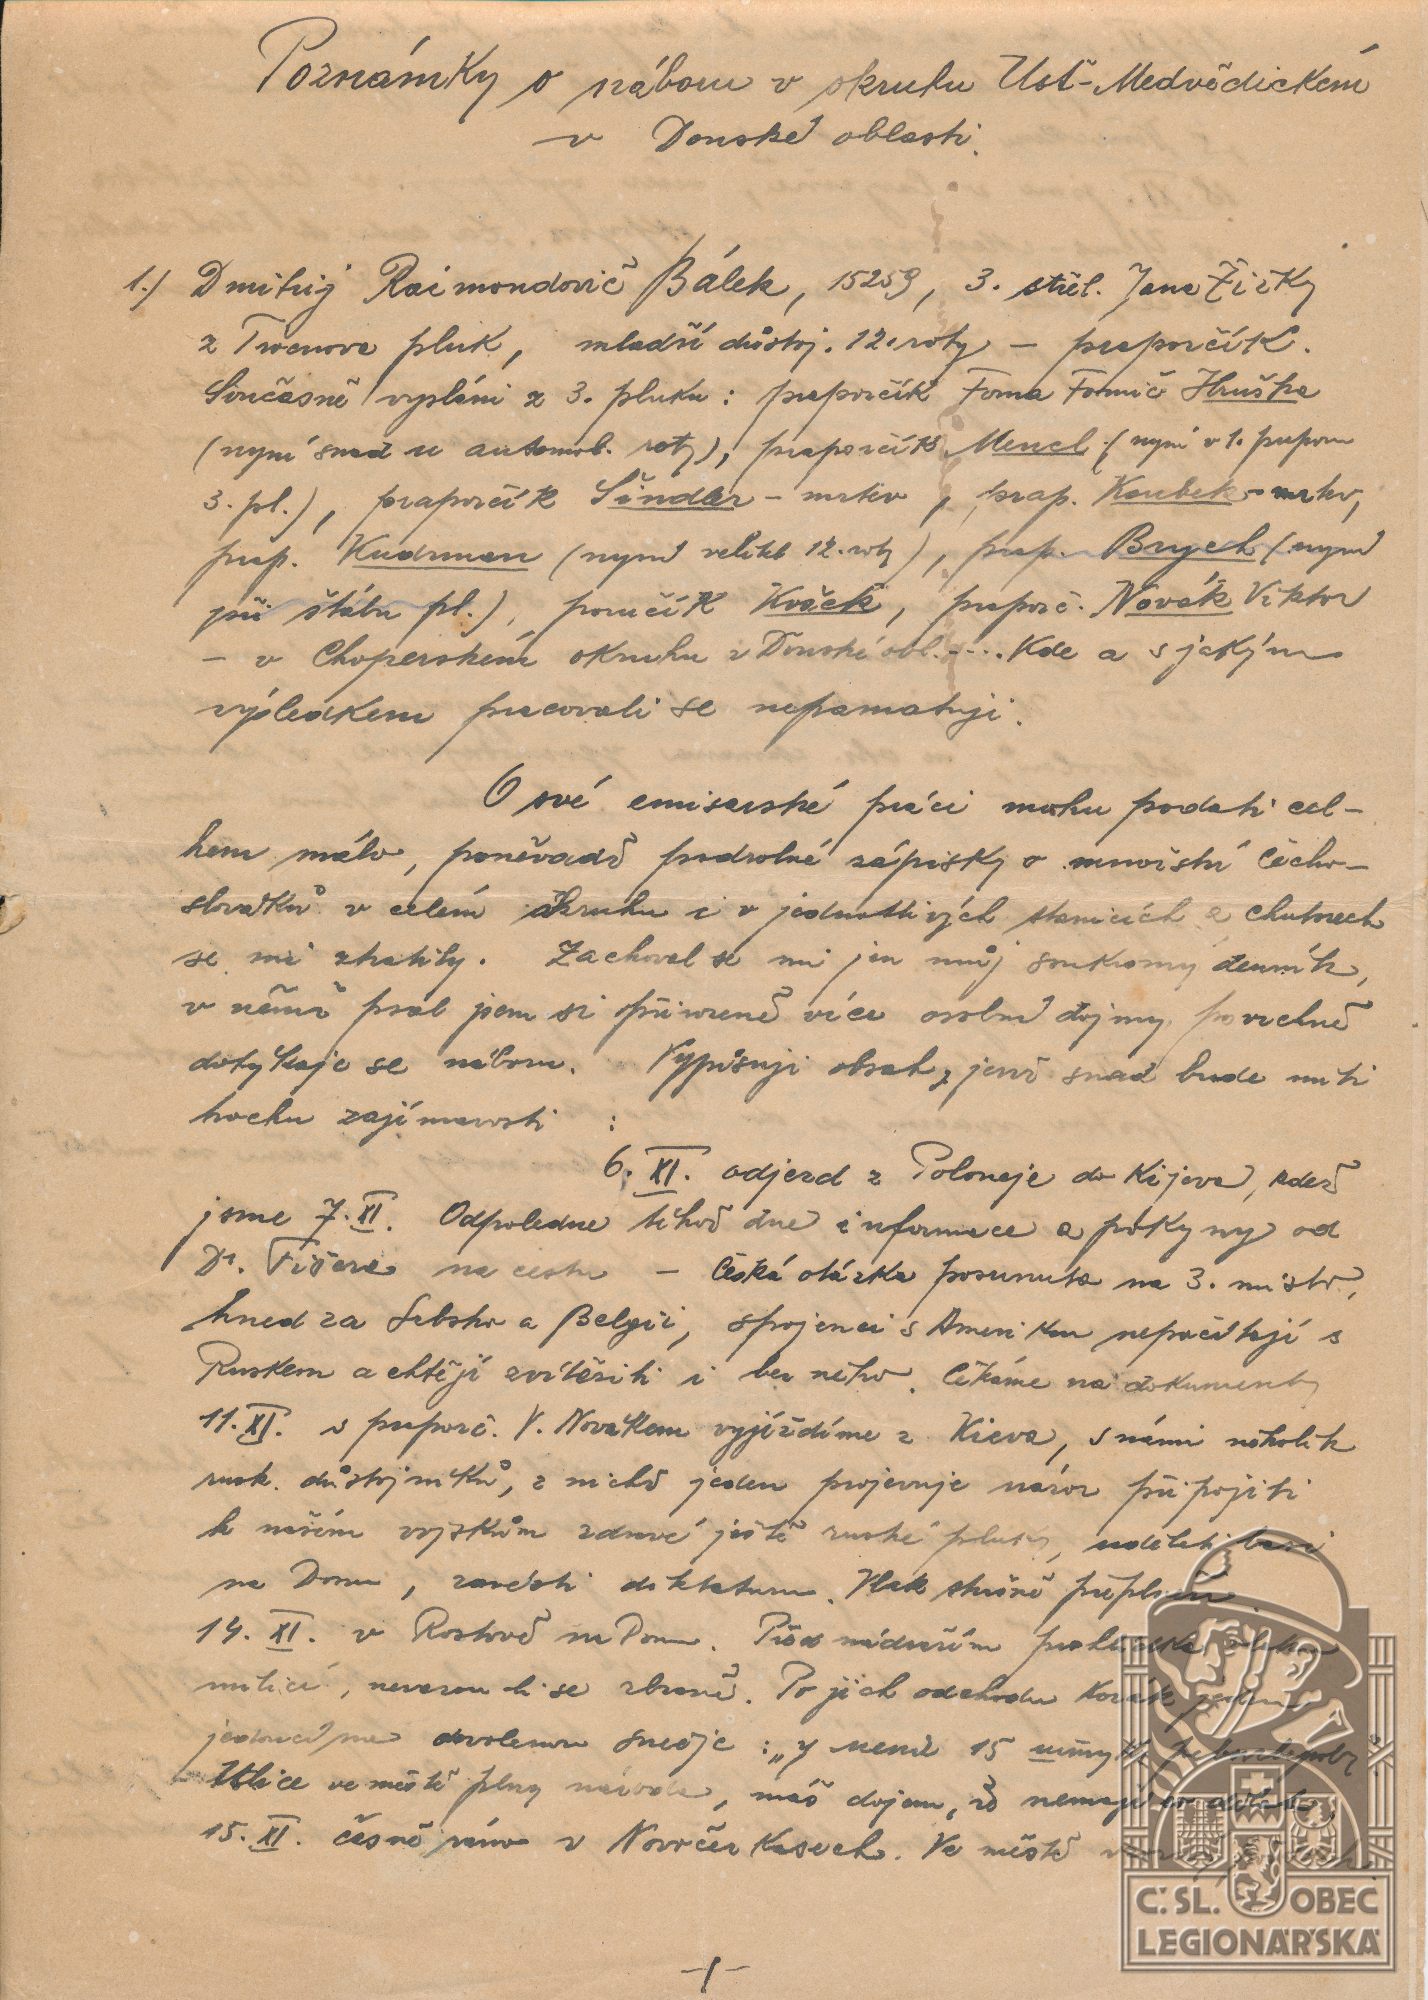 Poznámky o náboru v okruhu Usť-Medvědickém
v Donské oblasti.
1.) Dmitrij Raimondovič Bálek, 15259, 3. střel. Jana Žižky
z Trocnova pluk, mladší důstoj. 12. roty – praporčík.
Současně vysláni z 3. pluku: praporčík Foma Fomič Hruška
(nyní snad u automob. roty), praporčík Mencl (nyní v 1. praporu
3. pl.), praporčík Šindler – mrtev, prap. Koubek – mrtev,
prap. Kudrman (nyní velitel 12. roty), prap. Brych (nyní
při štábu pl.), poručík Kvaček, praporč. Novák Viktor
– v Choperském okruhu v Donské obl..... Kde a s jakým
výsledkem pracovali se nepamatuji.
O své emisarské práci mohu podati cel-
kem málo, poněvadž podrobné zápisky o množství Čecho-
slováků v celém okruhu i v jednotlivých stanicích a chutorech
se mi ztratily. Zachoval se mi jen můj soukromý denník,
v němž psal jsem si přirozeně více osobní dojmy povrchně
dotýkaje se náboru. Vypisuji obsah, jenž snad bude míti
trochu zajímavosti :
6. XI. odjezd z Poloneje do Kijeva, kdež
jsme 7. XI. Odpoledne téhož dne informace a pokyny od
Dr. Fišera na cestu – Česká otázka posunuta na 3. místo,
hned za Srbsko a Belgii, spojenci s Amerikou nepočítají s
Ruskem a chtějí zvítěziti i bez něho. Čekáme na dokumenty
11. XI. s praporč. V. Novákem vyjíždíme z Kieva, s námi několik
rusk. důstojníků, z nichž jeden projevuje názor připojiti
k našim vojskům zdravé ještě ruské pluky, udělati basi
na Donu, zavésti diktaturu. Vlak strašně přeplněn.
14. XI. v Rostově na Donu. Před nádražím prohlídka
milicí, nevezou-li se zbraně. Po jich odchodu kozák jeden
jedoucí na dovolenou směje : „У меня 15
Ulice ve městě plny národa, máš dojem, že nemají co dělati.
15. XI. časně ráno v Novočerkasech. Ve městě
– 1 –
Č. SL. OBEC
LEGIONÁŘSKÁ